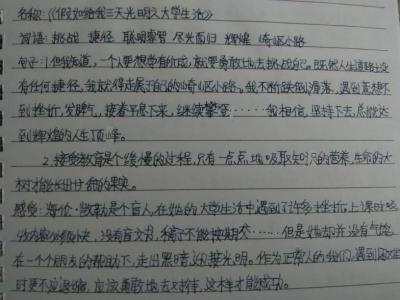 名称:《假如给我三天光明之大学生活》
词语:挑战 捷径 聪明睿智 尽兴而归 辉煌 崎岖小路
句子:1.但我知道,一个人要想学有所成,就要勇敢地去挑战自己。既然人生道路上没
有任何捷径,我就得走属于自己的崎岖小路。我不断跌倒,滑落,遇到意想不
到挫折,发脾气,接着平息下来,继续攀登……我相信,坚持下去,总能达
到辉煌的人生顶峰。
2.接受教育是个缓慢的过程,只有一点点地吸取知识的营养,生命的大
树才能长出甘甜的果实。
感受:海伦·凯勒是个盲人,在她的大学生活中遇到了许多挫折:上课时吸
收内容必须快,没有盲文书,稿子不能按期交……但是她却并没有气馁,
在一个个朋友的帮助下,走出黑暗,迎接光明。作为正常人的我们,遇到困难
时更不应退缩,应该勇敢地去对待,这样才能成功。